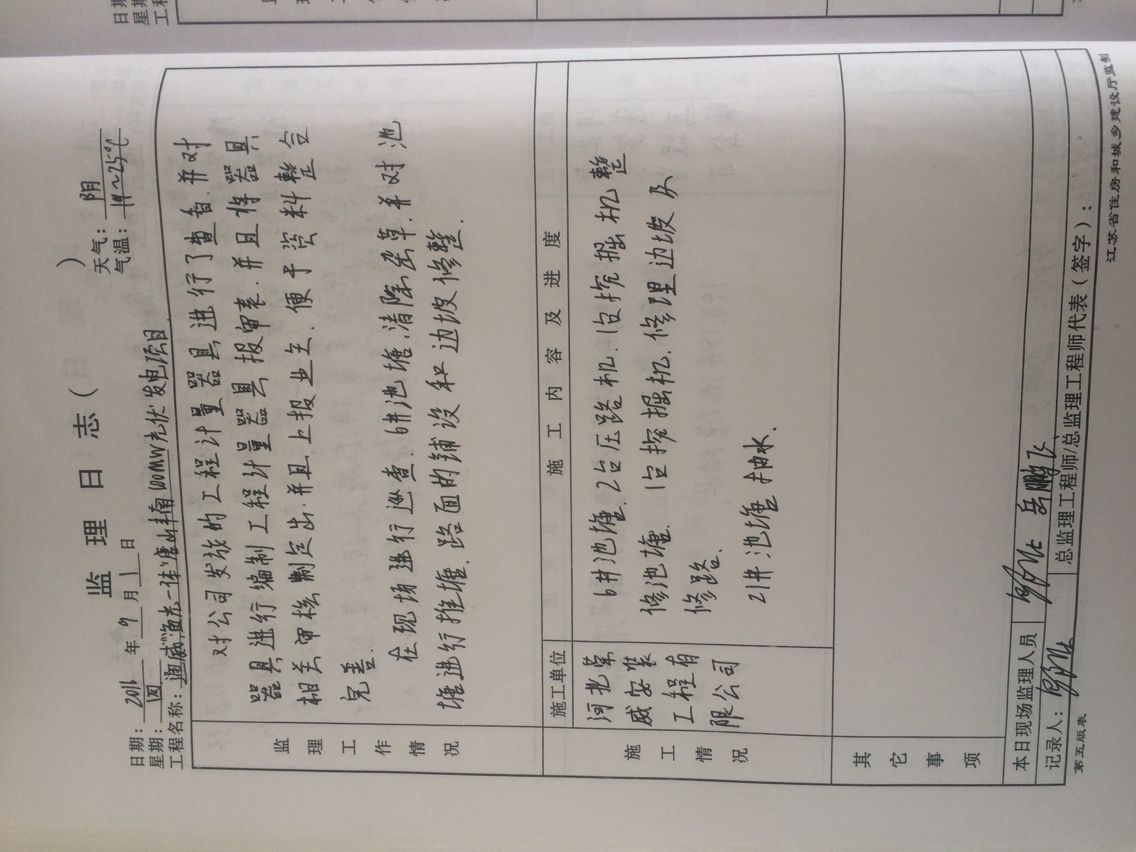 监理日志(日)
日期:2016年9月1日
天气:阴
星期:四
气温:19~25℃
工程名称:通威渔光一体唐山丰南100MW光伏发电项目
监理工作情况
对公司发放的工程计量器具进行了查看.并对
器具进行编制工程计量器具报审表.并且将器具
相关审核制定出.并且上报业主.便于资料整合
完善.
在现场进行巡查.6#池塘.清除杂草.并对池
塘进行推塘.路面的铺设和边坡修整.
施工情况
施工单位
施工内容及进度
河北荣
威安装
工程有
限公司
6#池塘.2台压路机.1台挖掘机整
修池塘.1台挖掘机.修理边坡及
修路.
21#池塘抽水.
其它事项
本日现场监理人员
岳鹏飞
记录人:
总监理工程师/总监理工程师代表(签字):
第五版表
江苏省住房和城乡建设厅监制